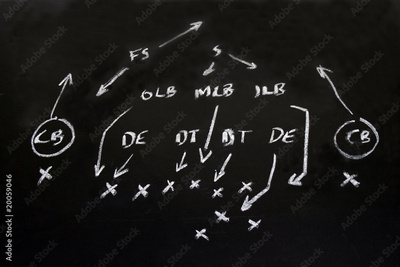 FS S
OLB MLB ILB
CB DE DT DT DE CB
X X X X X X X X
X X
X
Adobe Stock | #20059046